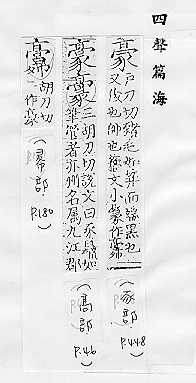 四聲篇海
豪 戶刀切豬毛如笄而端黑也
又俊也帥也籀文小篆作
(豕部 P.448)
三 胡刀切說文曰豕鬣如
筆管者亦州名屬九江郡
(高部 P.46)
胡刀切
作豪
(帚部 P.180)